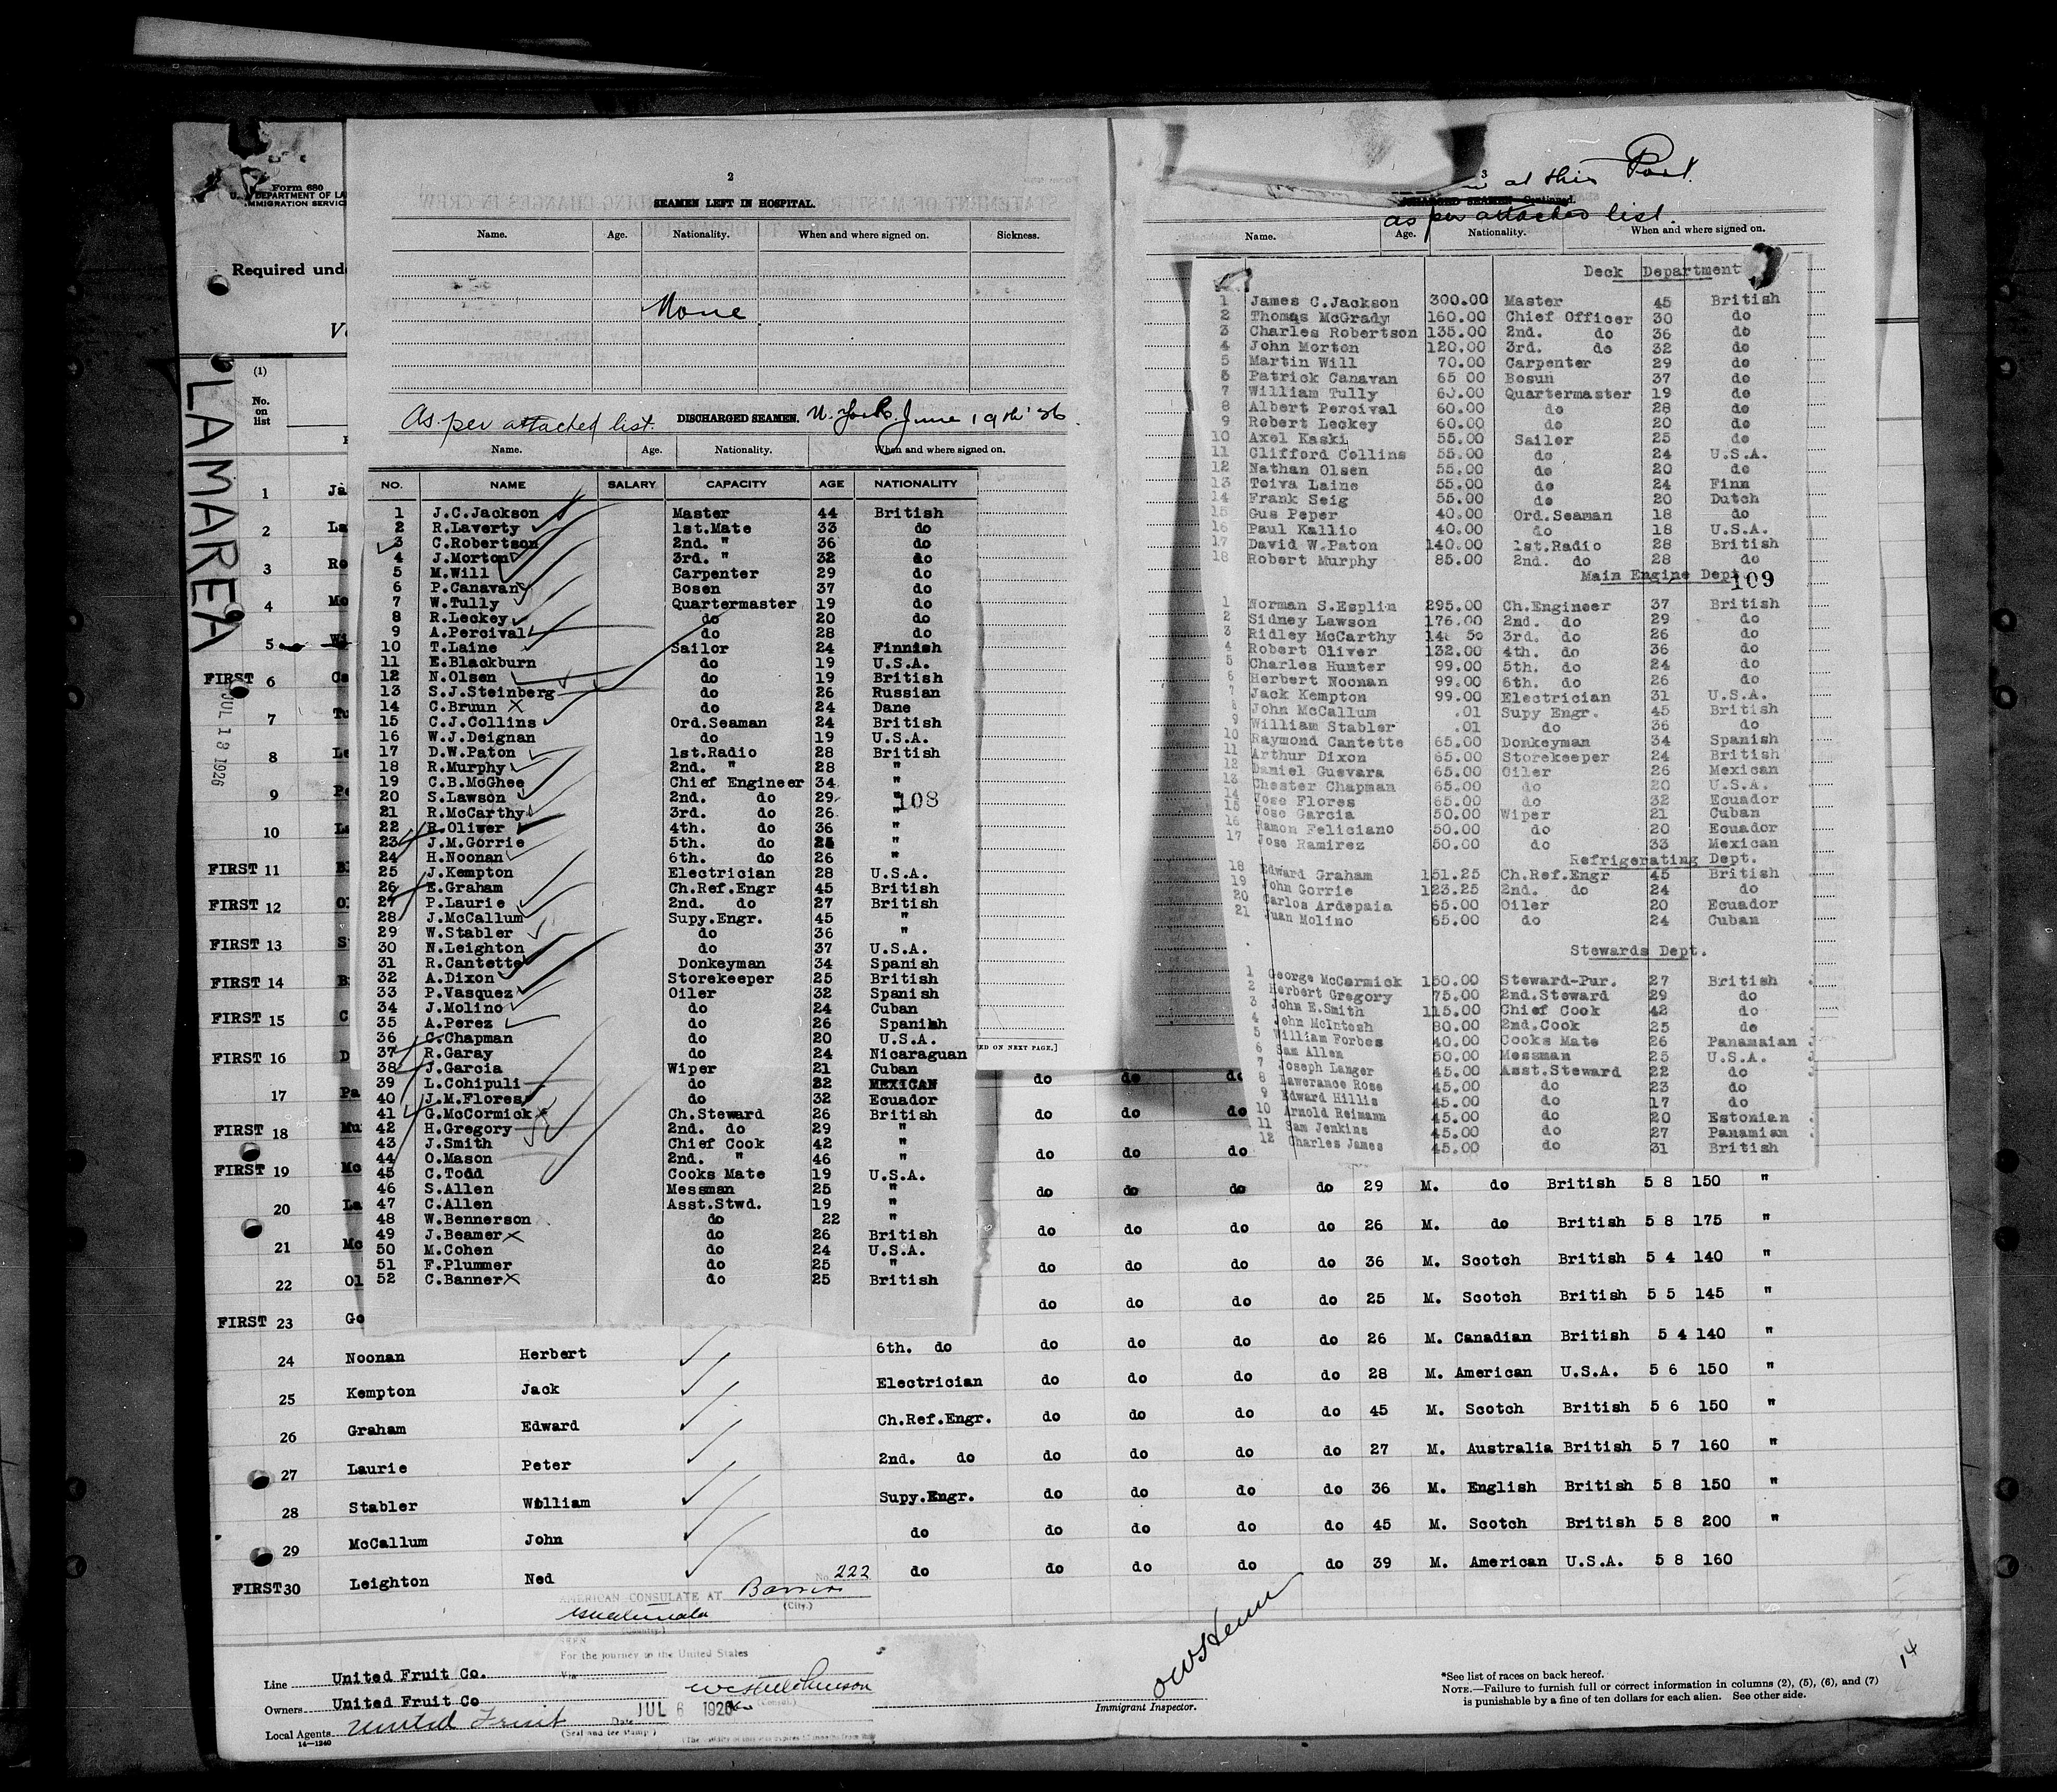 Form 680
U. DEPARTMENT OF LA
IMMIGRATION SERVIC
Required unde
(1)
No.
on
list
LA MAREA
JUL 18 1926
1 Ja
2 La
3 Ro
4 Mo
5 Wi
FIRST 6 Ca
7 Tu
8 Le
9 Pe
10 La
FIRST 11 Bl
FIRST 12 Ol
FIRST 13 S
FIRST 14 B
FIRST 15 C
FIRST 16 D
17 Pa
FIRST 18 Mu
FIRST 19 Mc
20 La
21 Mc
22 Ol
FIRST 23 Go
2
SEAMEN LEFT IN HOSPITAL.
Name. Age. Nationality. When and where signed on. Sickness.
None
As per attached list. DISCHARGED SEAMEN. N. York June 19th 26
Name. Age. Nationality. When and where signed on.
NO. NAME SALARY CAPACITY AGE NATIONALITY
1 J.C.Jackson Master 44 British
2 R.Laverty 1st.Mate 33 do
3 C.Robertson 2nd. " 36 do
4 J.Morton 3rd. " 32 do
5 M.Will Carpenter 29 do
6 P.Canavan Bosen 37 do
7 W.Tully Quartermaster 19 do
8 R.Leckey do 20 do
9 A.Percival do 28 do
10 T.Laine Sailor 24 Finnish
11 E.Blackburn do 19 U.S.A.
12 N.Olsen do 19 British
13 S.J.Steinberg do 26 Russian
14 C.Bruun do 24 Dane
15 C.J.Collins Ord.Seaman 24 British
16 W.J.Deignan do 19 U.S.A.
17 D.W.Paton 1st.Radio 28 British
18 R.Murphy 2nd. " 28 "
19 C.B.McGhee Chief Engineer 34 "
20 S.Lawson 2nd. do 29 "
108
21 R.McCarthy 3rd. do 26 "
22 R.Oliver 4th. do 36 "
23 J.M.Gorrie 5th. do "
24 H.Noonan 6th. do 26 "
25 J.Kempton Electrician 28 U.S.A.
26 E.Graham Ch.Ref.Engr 45 British
27 P.Laurie 2nd. do 27 British
28 J.McCallum Supy.Engr. 45 "
29 W.Stabler do 36 "
30 N.Leighton do 37 U.S.A.
31 R.Cantette Donkeyman 34 Spanish
32 A.Dixon Storekeeper 25 British
33 P.Vasquez Oiler 32 Spanish
34 J.Molino do 24 Cuban
35 A.Perez do 26 Spanish
36 C.Chapman do 20 U.S.A.
37 R.Garay do 24 Nicaraguan
38 J.Garcia Wiper 21 Cuban
39 L.Cohipuli do 22 MEXICAN
40 J.M.Flores do 32 Ecuador
41 G.McCormick Ch.Steward 26 British
42 H.Gregory 2nd. do 29 "
43 J.Smith Chief Cook 42 "
44 O.Mason 2nd. " 46 "
45 C.Todd Cooks Mate 19 U.S.A.
46 S.Allen Messman 25 "
47 C.Allen Asst.Stwd. 19 "
48 W.Bennerson do 22 "
49 J.Beamer do 26 British
50 M.Cohen do 24 U.S.A.
51 F.Plummer do 25 "
52 C.Banner do 25 British
ED ON NEXT PAGE.]
3
at this Port.
DISCHARGED SEAMEN—Continued.
as per attached list.
Name. Age. Nationality. When and where signed on.
Deck Department
1 James C.Jackson 300.00 Master 45 British
2 Thomas McGrady 160.00 Chief Officer 30 do
3 Charles Robertson 135.00 2nd. do 36 do
4 John Morton 120.00 3rd. do 32 do
5 Martin Will 70.00 Carpenter 29 do
6 Patrick Canavan 65 00 Bosun 37 do
7 William Tully 60.00 Quartermaster 19 do
8 Albert Percival 60.00 do 28 do
9 Robert Leckey 60.00 do 20 do
10 Axel Kaski 55.00 Sailor 25 do
11 Clifford Collins 55.00 do 24 U.S.A.
12 Nathan Olsen 55.00 do 20 do
13 Toiva Laine 55.00 do 24 Finn
14 Frank Seig 55.00 do 20 Dutch
15 Gus Peper 40.00 Ord.Seaman 18 do
16 Paul Kallio 40.00 do 18 U.S.A.
17 David W.Paton 140.00 1st.Radio 28 British
18 Robert Murphy 85.00 2nd. do 28 do
Main Engine Dept.
109
1 Norman S.Esplin 295.00 Ch.Engineer 37 British
2 Sidney Lawson 176.00 2nd. do 29 do
3 Ridley McCarthy 148 50 3rd. do 26 do
4 Robert Oliver 132.00 4th. do 36 do
5 Charles Hunter 99.00 5th. do 24 do
6 Herbert Noonan 99.00 6th. do 26 do
7 Jack Kempton 99.00 Electrician 31 U.S.A.
8 John McCallum .01 Supy Engr. 45 British
9 William Stabler .01 do 36 do
10 Raymond Cantette 65.00 Donkeyman 34 Spanish
11 Arthur Dixon 65.00 Storekeeper 24 British
12 Daniel Guevara 65.00 Oiler 26 Mexican
13 Chester Chapman 65.00 do 20 U.S.A.
14 Jose Flores 65.00 do 32 Ecuador
15 Jose Garcia 50.00 Wiper 21 Cuban
16 Ramon Feliciano 50.00 do 20 Ecuador
17 Jose Ramirez 50.00 do 33 Mexican
Refrigerating Dept.
18 Edward Graham 151.25 Ch.Ref.Engr 45 British
19 John Gorrie 123.25 2nd. do 24 do
20 Carlos Ardepaia 65.00 Oiler 20 Ecuador
21 Juan Molino 65.00 do 24 Cuban
Stewards Dept.
1 George McCormick 150.00 Steward-Pur. 27 British
2 Herbert Gregory 75.00 2nd.Steward 29 do
3 John E.Smith 115.00 Chief Cook 42 do
4 John McIntosh 80.00 2nd.Cook 25 do
5 William Forbes 40.00 Cooks Mate 26 Panamaian
6 Sam Allen 50.00 Messman 25 U.S.A.
7 Joseph Langer 45.00 Asst.Steward 22 do
8 Lawerance Rose 45.00 do 23 do
9 Edward Hillis 45.00 do 17 do
10 Arnold Reimann 45.00 do 20 Estonian
11 Sam Jenkins 45.00 do 27 Panamian
12 Charles James 45.00 do 31 British
do do do
do do do
do do do
do do do do 29 M. do British 5 8 150 "
do do do do 26 M. do British 5 8 175 "
do do do do 36 M. Scotch British 5 4 140 "
do do do do 25 M. Scotch British 5 5 145 "
24 Noonan Herbert 6th. do do do do do 26 M. Canadian British 5 4 140 "
25 Kempton Jack Electrician do do do do 28 M. American U.S.A. 5 6 150 "
26 Graham Edward Ch.Ref.Engr. do do do do 45 M. Scotch British 5 6 150 "
27 Laurie Peter 2nd. do do do do do 27 M. Australia British 5 7 160 "
28 Stabler William Supy.Engr. do do do do 36 M. English British 5 8 150 "
29 McCallum John do do do do do 45 M. Scotch British 5 8 200 "
FIRST 30 Leighton Ned do do do do do 39 M. American U.S.A. 5 8 160
No. 222
AMERICAN CONSULATE AT Barrios
(City.)
Guatemala
(Country.)
SEEN
For the journey to the United States
Via
(Consul.)
Date JUL 6 1926
(Seal and fee stamp.)
Line United Fruit Co.
Owners United Fruit Co
Local Agents United Fruit
14—1240
Immigrant Inspector.
*See list of races on back hereof.
NOTE.—Failure to furnish full or correct information in columns (2), (5), (6), and (7)
is punishable by a fine of ten dollars for each alien. See other side.
14